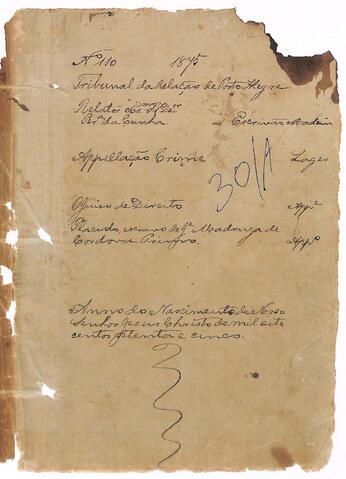 Nº 110 1875
Tribunal da Relação de Porto Alegre
Relator o Exmo Sr Der
Perª da Cunha Escrivão Madeira
Appellação Crime Lages
30/1
O Juiso de Direito Appe
Placido, escravo de Jº Madruga de
Cordova Appdº
Anno do Nascimento de Nosso
Senhor Jesus Christo de mil oito
centos setenta e cinco.